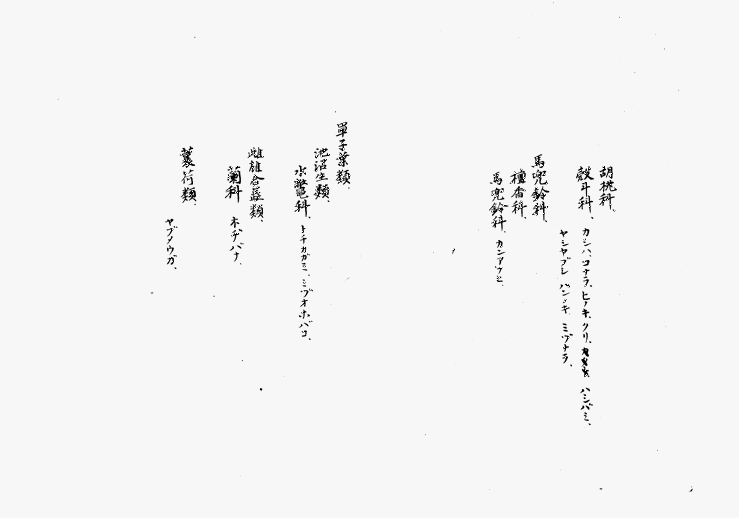 胡桃科、
殼斗科、カシハ、コナラ、ヒノキ、クリ、ハシバミ、
ヤシヤブシ ハンノキ ミヅナラ、
馬兜鈴科、
檀香科、
馬兜鈴科、カンアフヒ
單子葉類、
池沼生類、
水鼈科、トチカガミ、ミヅオホバコ、
雌雄合蕊類、
蘭科 ネヂバナ、
蘘荷類、
ヤブメウガ、